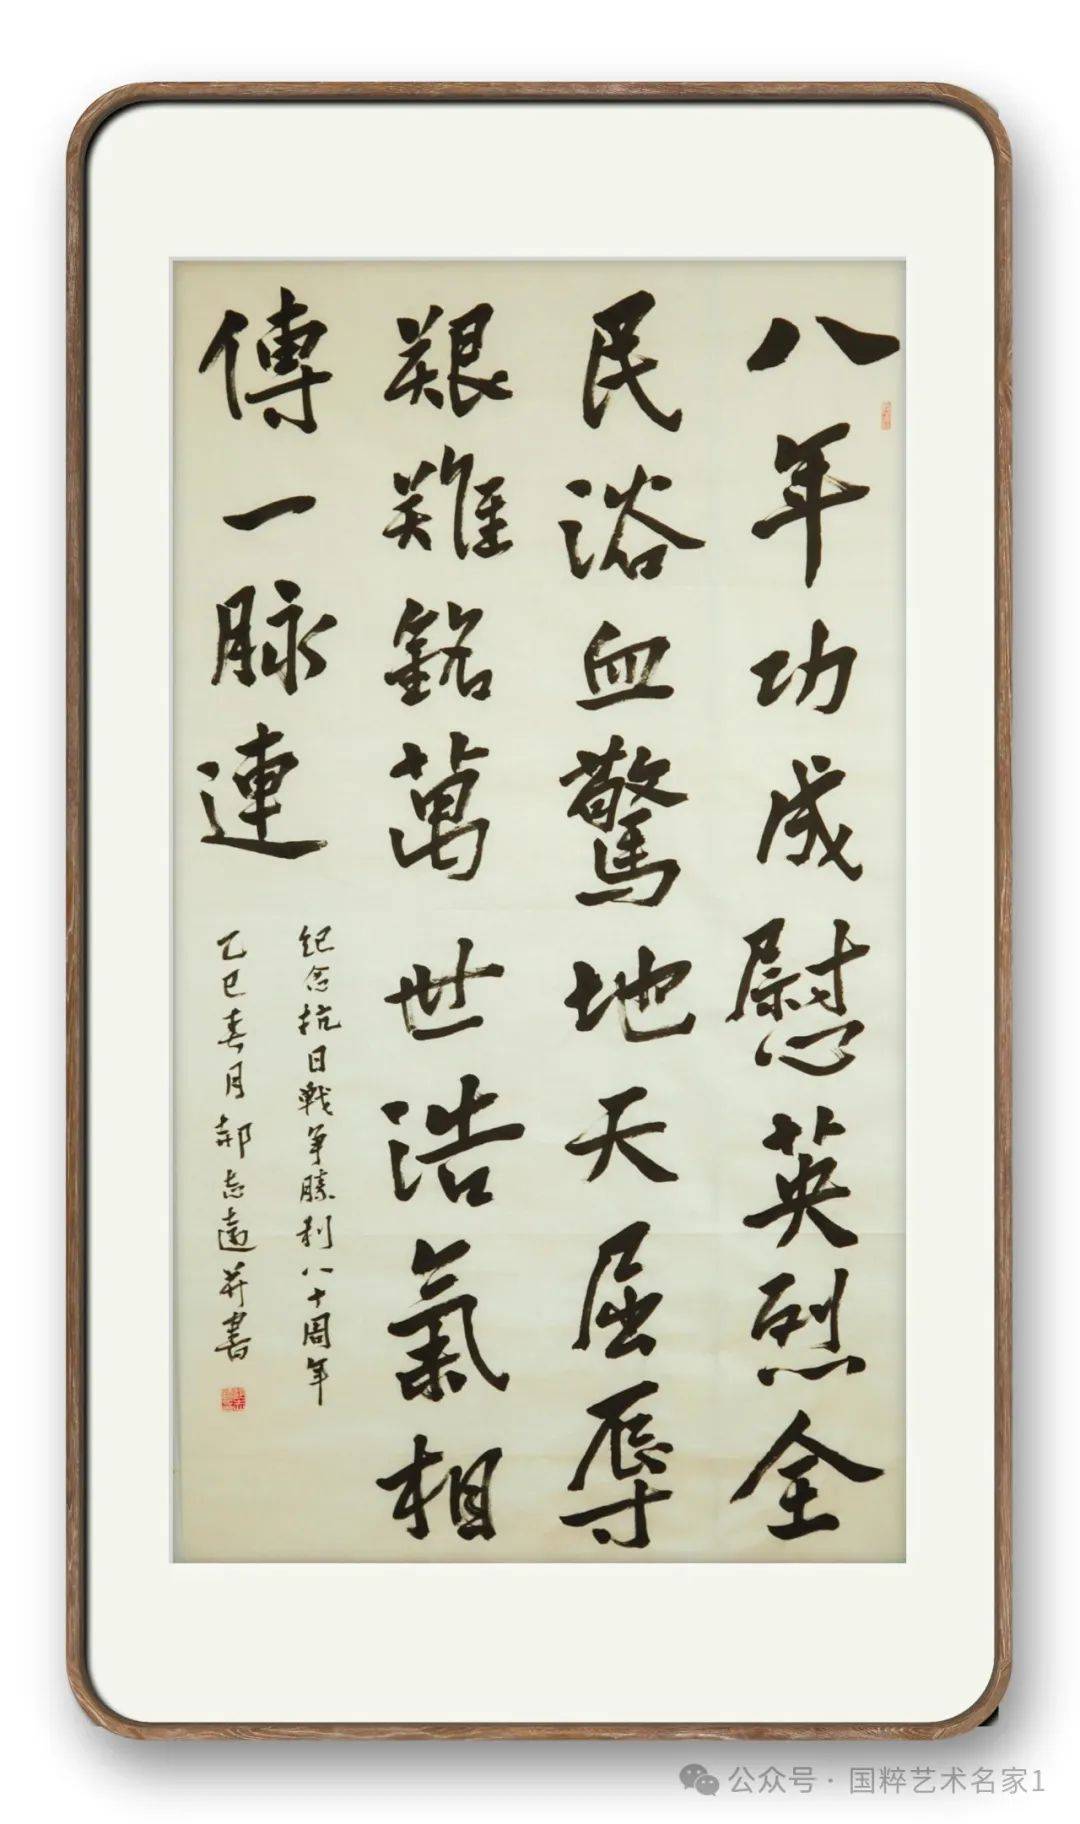 八年功成慰英烈全
民浴血驚地天屈辱
艱難銘萬世浩氣相
傳一脉連
紀念抗日戰争勝利八十周年
乙巳春月郝志遠并書
公众号·国粹艺术名家1